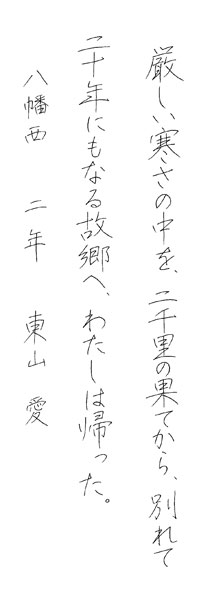 厳しい寒さの中を、二千里の果てから、別れて
二十年にもなる故郷へ、わたしは帰った。
八幡西 二年 東山 愛